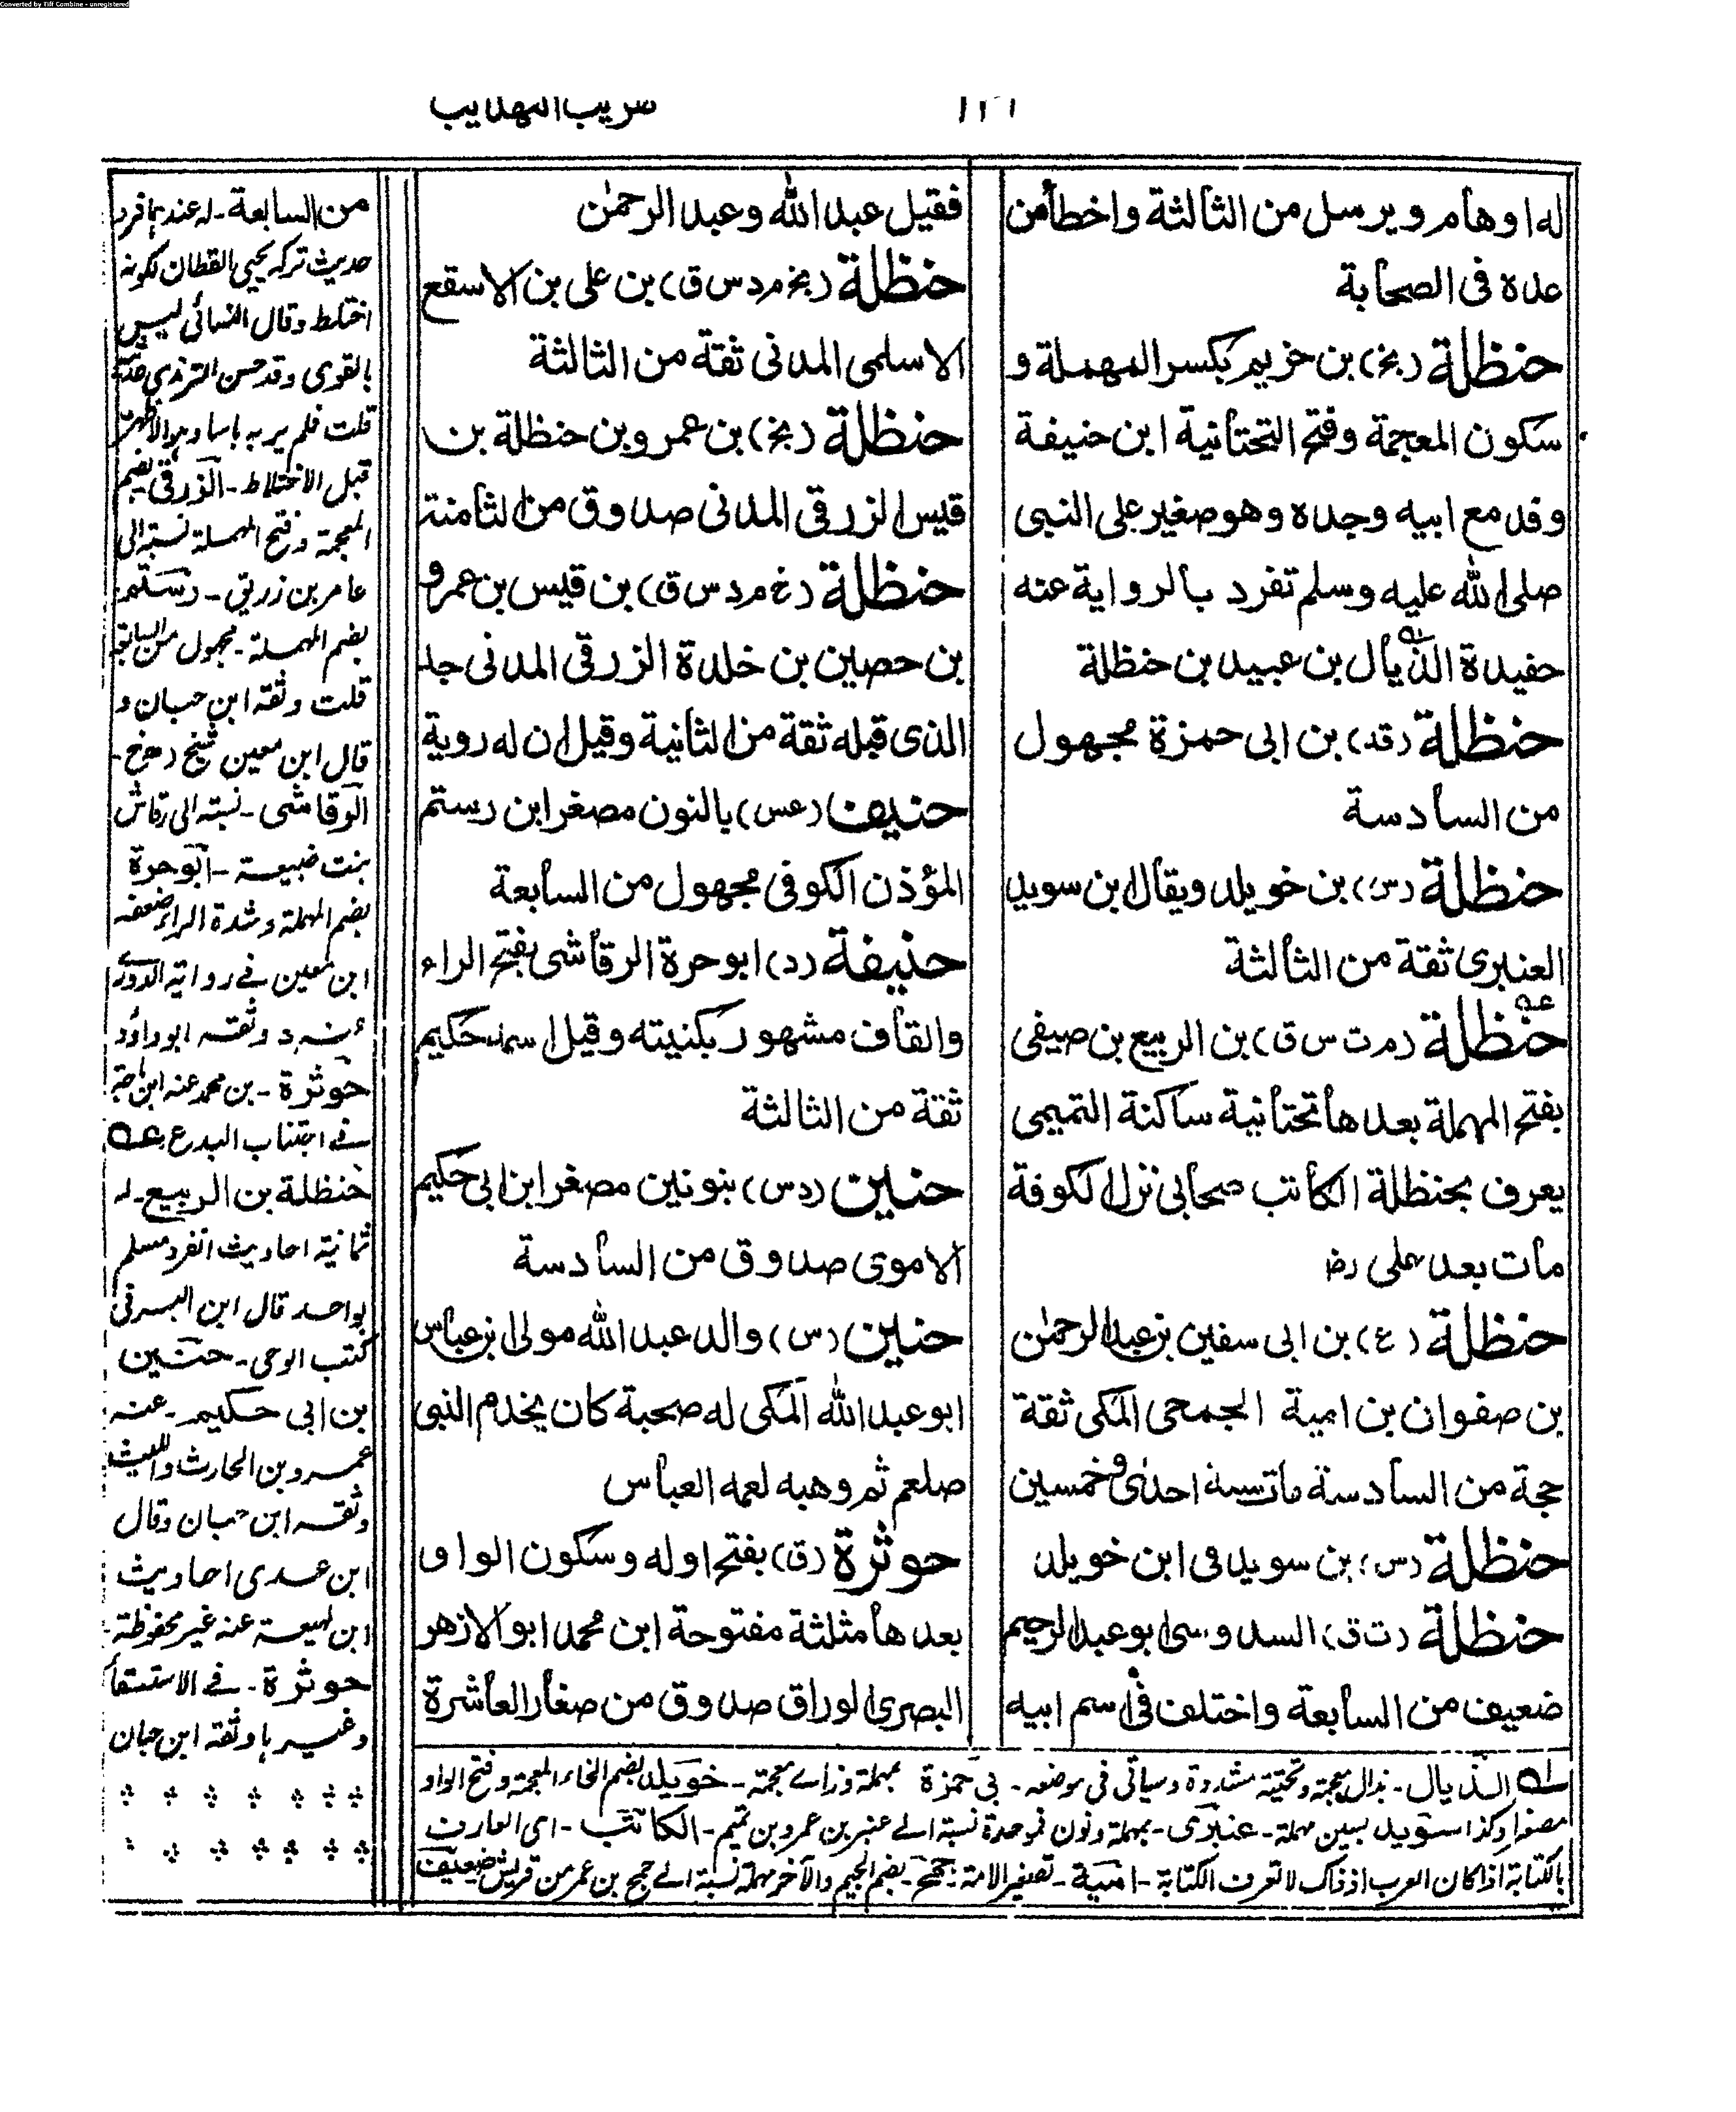 Converted by Tiff Combine - unregistered
له اوهام ويرسل من الثالثة واخطأ من
عده فى الصحابة
حنظلة (بخ) بن خزيم بكسر المهملة و
سكون المعجمة وفتح التحتانية ابن حنيفة
وفد مع ابيه وجده وهو صغير على النبى
صلى الله عليه وسلم تفرد بالرواية عنه
حفيدة الذيال بن عبيد بن حنظلة
حنظلة (قد) بن ابى حمزة مجهول
من السادسة
حنظلة (س) بن خويلد ويقال ابن سويد
العنبرى ثقة من الثالثة
حنظلة (م ت س ق) بن الربيع بن صيفى
بفتح المهملة بعدها تحتانية ساكنة التميمى
يعرف بحنظلة الكاتب صحابى نزل الكوفة
مات بعد على رض
حنظلة (ع) بن ابى سفين بن عبد الرحمن
بن صفوان بن امية الجمحى المكى ثقة
حجة من السادسة مات سنة احدى وخمسين
حنظلة (س) بن سويد فى ابن خويلد
حنظلة (ت ق) السدوسى ابو عبد الرحيم
ضعيف من السابعة واختلف فى اسم ابيه
فقيل عبد الله وعبد الرحمن
حنظلة (بخ م د س ق) بن على بن الاسقع
الاسلمى المدنى ثقة من الثالثة
حنظلة (بخ) بن عمرو بن حنظلة بن
قيس الزرقى المدنى صدوق من الثامنة
حنظلة (خ م د س ق) بن قيس بن عمرو
بن حصين بن خلدة الزرقى المدنى جد
الذى قبله ثقة من الثانية وقيل ان له روية
حنيف (عس) بالنون مصغر ابن رستم
المؤذن الكوفى مجهول من السابعة
حنيفة (د) ابو حرة الرقاشى بفتح الراء
والقاف مشهور بكنيته وقيل اسمه حكيم
ثقة من الثالثة
حنين (د س) بنونين مصغر ابن ابى حكيم
الاموى صدوق من السادسة
حنين (س) والد عبد الله مولى ابن عباس
ابو عبد الله المكى له صحبة كان يخدم النبى
صلعم ثم وهبه لعمه العباس
حوثرة (ق) بفتح اوله وسكون الواو
بعدها مثلثة مفتوحة ابن محمد ابو الازهر
البصرى الوراق صدوق من صغار العاشرة
من السابعة - له عندهما فرد
حديث تركه يحيى القطان لكونه
اختلط وقال النسائى ليس
بالقوى وقد حسن الترمذى
قلت فلم ير به باسا
قبل الاختلاط - الزرقى بضم
المعجمة وفتح المهملة نسبته الى
عامر بن زريق - رستم
بضم المهملة - مجهول من السابعة
قلت وثقه ابن حبان و
قال ابن معين شيخ
الرقاشى - نسبته الى رقاش
بنت ضبيعة - ابو حرة
بضم المهملة وشدة الراء ضعفه
ابن معين فى رواية الدورى
عنه و وثقه ابو داؤد
حوثرة - بن محمد عنه ابن ماجة
فى اجتناب البدع
حنظلة بن الربيع - له
ثمانية احاديث انفرد مسلم
بواحد قال ابن البرقى
كتب الوحى - حنين
بن ابى حكيم - عنه
عمرو بن الحارث والليث
وثقه ابن حبان وقال
ابن عدى احاديث
ابن لهيعة عنه غير محفوظة
حوثرة - فى الاستسقا
وغيرها وثقه ابن حبان
الذيال - بذال معجمة وتحتية مشددة وسياتى فى موضعه - بى حمزة بمهملة وزاى معجمة - خويلد بضم الخاء المعجمة وفتح الواو
مصغرا وكذا سويد بسين مهملة - عنبرى - بمهملة ونون فموحدة نسبة الى عنبر بن عمرو بن تميم - الكاتب - اى العارف
بالكتابة اذ كان العرب اذ ذاك لا تعرف الكتابة - امية - تصغير الامة - جمح - بضم الجيم والآخر مهملة نسبة الى جمح بن عمر من قريش ضعيف